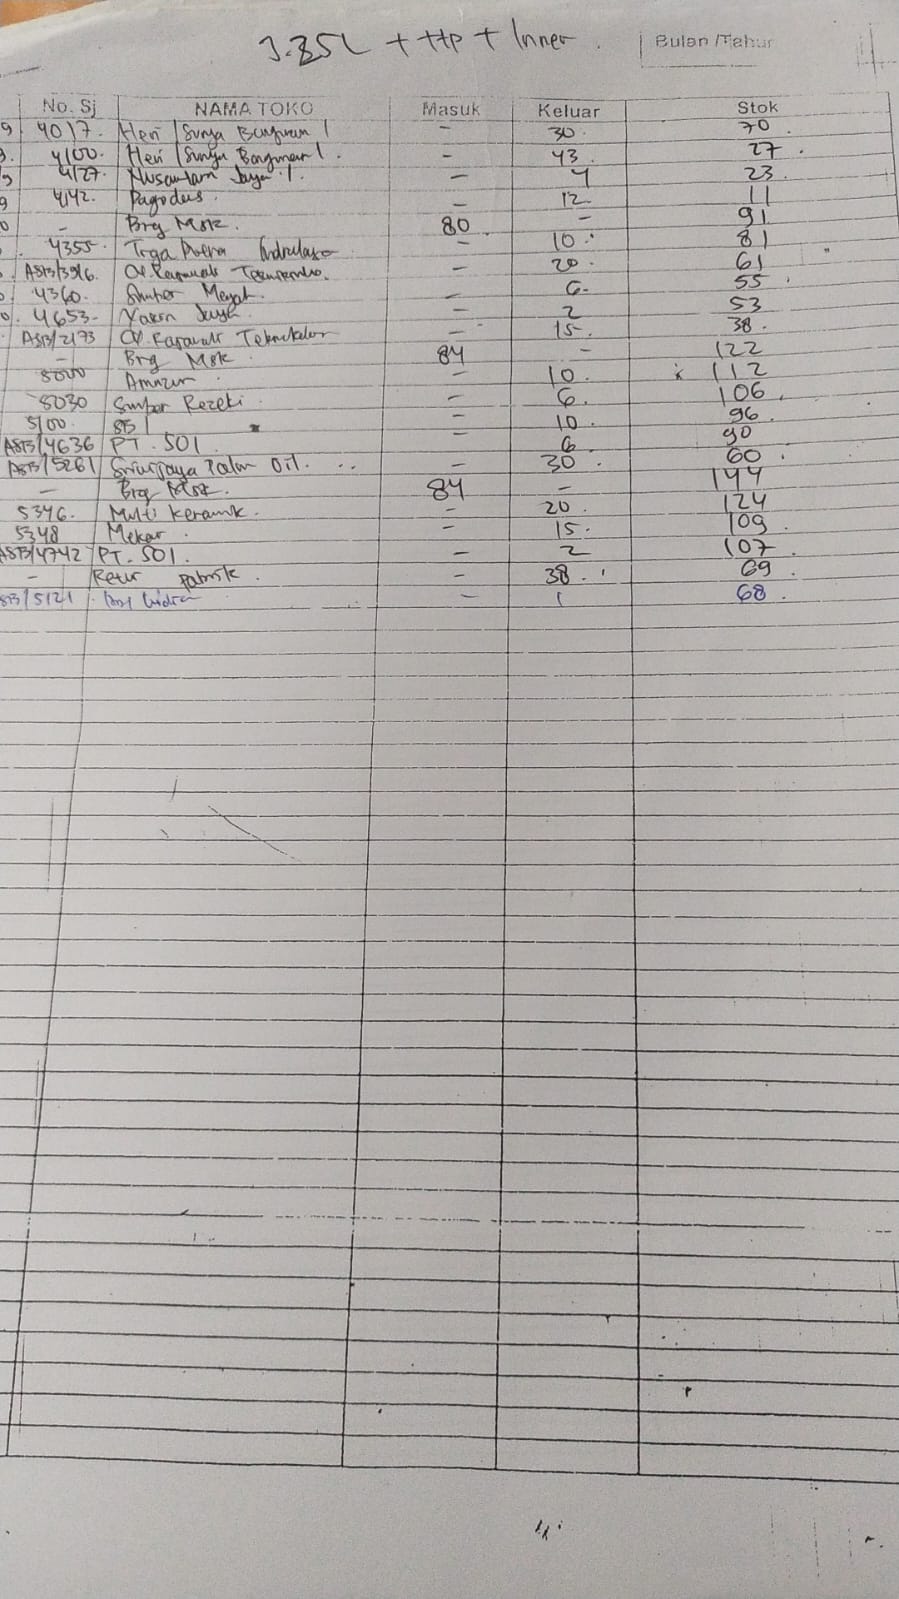 3.85L + ttp + Inner.
Bulan/Tahun
No. Sj NAMA TOKO Masuk Keluar Stok
4017. Heri / Surya Bangunan 1 - 30. 70.
4100. Heri / Surya Bangunan 1. - 43. 27.
4127. Nusantara Jaya 1. - 4 23.
4142. Pagodes - 12 11
- Brg Msk 80 - 91
4355 Tiga Putra Indralaya - 10. 81
ASB/3916 CV. - 20. 61
4360. Sumber Megah. - 6. 55
4653. Yakin Jaya. - 2 53
ASB/2173 CV. - 15. 38.
- Brg Msk 84 - 122
5000 Amazon - 10. 112
5030 Sumber Rezeki. - 6. 106
5100. 881 - 10. 96
ASB/4636 PT. 501 - 6 90
ASB/5261 Sriwijaya Palm Oil. - 30. 60
- Brg Msk. 84 - 144
5346. Multi Keramik. - 20. 124
5348 Mekar. - 15. 109
ASB/4742 PT. 501. - 2 107
- Retur pabrik. - 38. 69
5121 - 1 68.